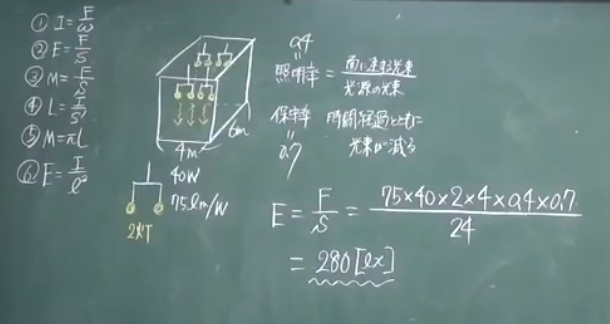 ① I=F/ω
② E=F/S
③ M=F/S
④ L=I/S'
⑤ M=πL
⑥ E=I/l²
4m
6m
40W
75lm/W
2灯
0.4
=
照明率 = 面に来る光束/光源の光束
保守率 時間経過とともに
光束が減る
=
0.7
E = F/S = 75×40×2×4×0.4×0.7/24
= 280[lx]